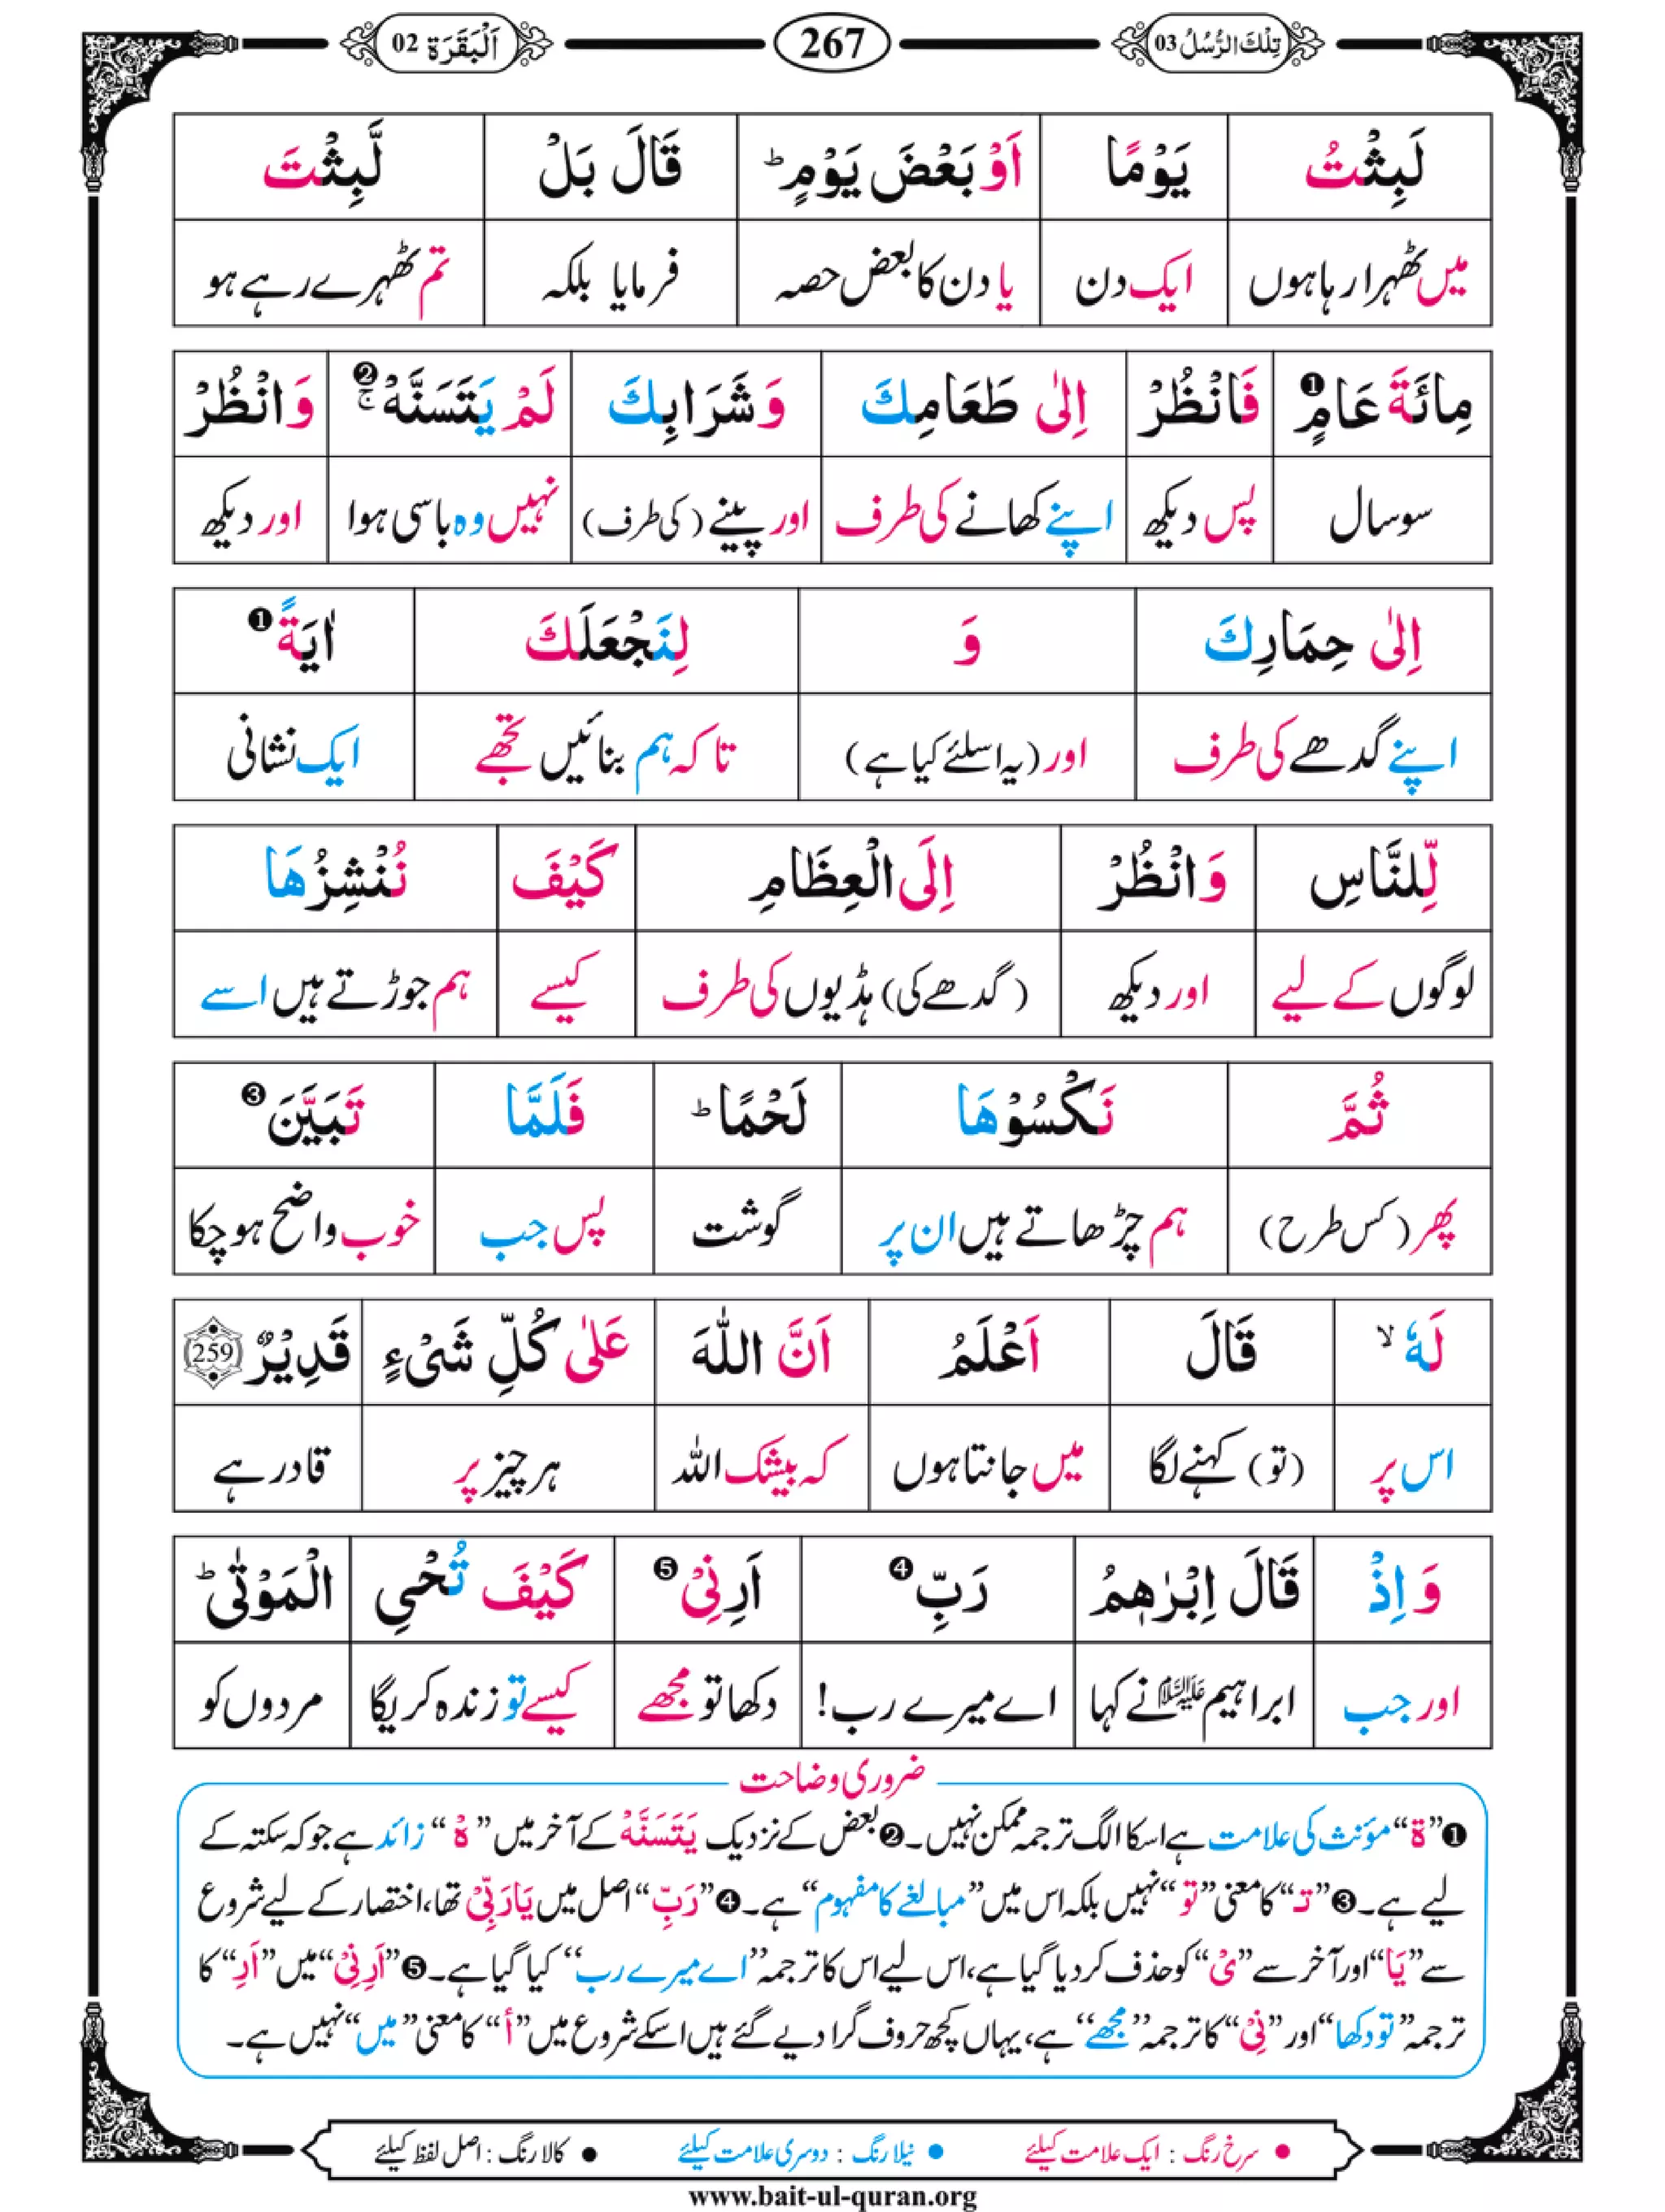 تِلْكَ الرُّسُلُ 03 267 اَلْبَقَرَة 02
لَبِثْتُ يَوْمًا اَوْ بَعْضَ يَوْمٍ ؕ قَالَ بَلْ لَّبِثْتَ
میں ٹھہرا رہا ہوں ایک دن یا دن کا بعض حصہ فرمایا بلکہ تم ٹھہرے رہے ہو
مِائَةَ عَامٍ ❶ فَانْظُرْ اِلٰى طَعَامِكَ وَشَرَابِكَ لَمْ يَتَسَنَّهْ ۚ ❷ وَانْظُرْ
سو سال پس دیکھ اپنے کھانے کی طرف اور پینے (کی طرف) نہیں وہ باسی ہوا اور دیکھ
اِلٰى حِمَارِكَ وَ لِنَجْعَلَكَ اٰيَةً ❶
اپنے گدھے کی طرف اور (یہ اسلئے کیا ہے) تاکہ ہم بنائیں تجھے ایک نشانی
لِّلنَّاسِ وَانْظُرْ اِلَى الْعِظَامِ كَيْفَ نُنْشِزُهَا
لوگوں کے لیے اور دیکھ (گدھے کی) ہڈیوں کی طرف کیسے ہم جوڑتے ہیں اسے
ثُمَّ نَكْسُوْهَا لَحْمًا ؕ فَلَمَّا تَبَيَّنَ ❸
پھر (کس طرح) ہم چڑھاتے ہیں ان پر گوشت پس جب خوب واضح ہو چکا
لَهٗ ۙ قَالَ اَعْلَمُ اَنَّ اللّٰهَ عَلٰى كُلِّ شَىْءٍ قَدِيْرٌ 259
اس پر (تو) کہنے لگا میں جانتا ہوں کہ بیشک اللہ ہر چیز پر قادر ہے
وَاِذْ قَالَ اِبْرٰهٖمُ رَبِّ ❹ اَرِنِىْ ❺ كَيْفَ تُحْىِ الْمَوْتٰى ؕ
اور جب ابراہیم علیہ السلام نے کہا اے میرے رب! دکھا تو مجھے کیسے تو زندہ کریگا مردوں کو
ضروری وضاحت
❶ ”ة“ مؤنث کی علامت ہے اسکا الگ ترجمہ ممکن نہیں۔ ❷ بعض کے نزدیک يَتَسَنَّهْ کے آخر میں ”هْ“ زائد ہے جو کہ سکتہ کے
لیے ہے۔ ❸ ”تـ“ کا معنی ”تو“ نہیں بلکہ اس میں ”مبالغے کا مفہوم“ ہے۔ ❹ ”رَبِّ“ اصل میں يَارَبِّىْ تھا، اختصار کے لیے شروع
سے ”يَا“ اور آخر سے ”ىْ“ کو حذف کر دیا گیا ہے، اس لیے اس کا ترجمہ ”اے میرے رب“ کیا گیا ہے۔ ❺ ”اَرِنِىْ“ میں ”اَرِ“ کا
ترجمہ ”تو دکھا“ اور ”نِىْ“ کا ترجمہ ”مجھے“ ہے، یہاں کچھ حروف گرا دیے گئے ہیں اسکے شروع میں ”أ“ کا معنی ”میں“ نہیں ہے۔
● سرخ رنگ : ایک علامت کیلئے ● نیلا رنگ : دوسری علامت کیلئے ● کالا رنگ : اصل لفظ کیلئے
www.bait-ul-quran.org